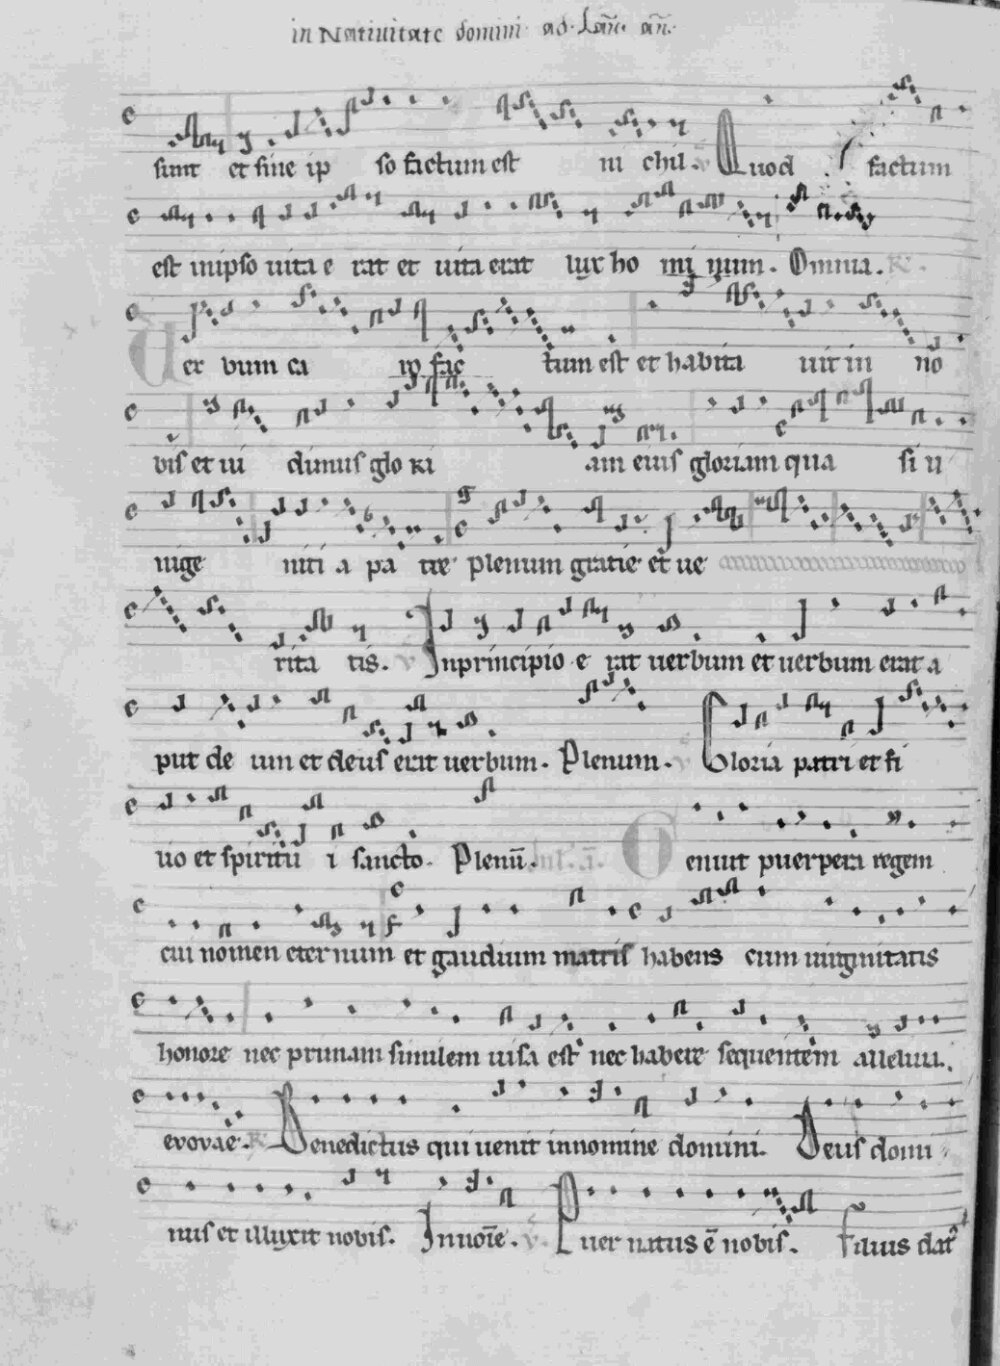 in Nativitate domini ad Lau͂. an͂.
sunt et sine ip so factum est ni chil. Quod factum
est inipso uita e rat et uita erat lux ho mi num. Omnia.
Uer bum ca ro fac tum est et habita uit in no
bis et ui dimus glo ri am eius gloriam qua si u
nige niti a pa tre plenum gratie et ue
rita tis. Inprincipio e rat uerbum et uerbum erat a
put de um et deus erat uerbum. Plenum. Gloria patri et fi
lio et spiritu i sancto. Plenū.
Genuit puerpera regem
cui nomen eternum et gaudium matris habens cum uirginitatis
honore nec primam similem uisa est nec habere sequentem alleluia.
evovae. Benedictus qui uenit innomine domini. Deus domi
nus et illuxit nobis. Innoīe. Puer natus ē nobis. Filius dat